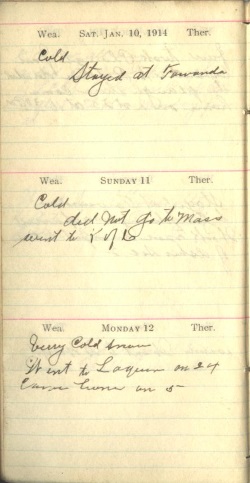 Wea. SAT. JAN. 10, 1914 Ther.
Cold
Stayed at Towanda
Wea. SUNDAY 11 Ther.
Cold
did Not go to Mass
went to K of C
Wea. MONDAY 12 Ther.
Very Cold snow
Went to Laquin on 24
Came home on 5